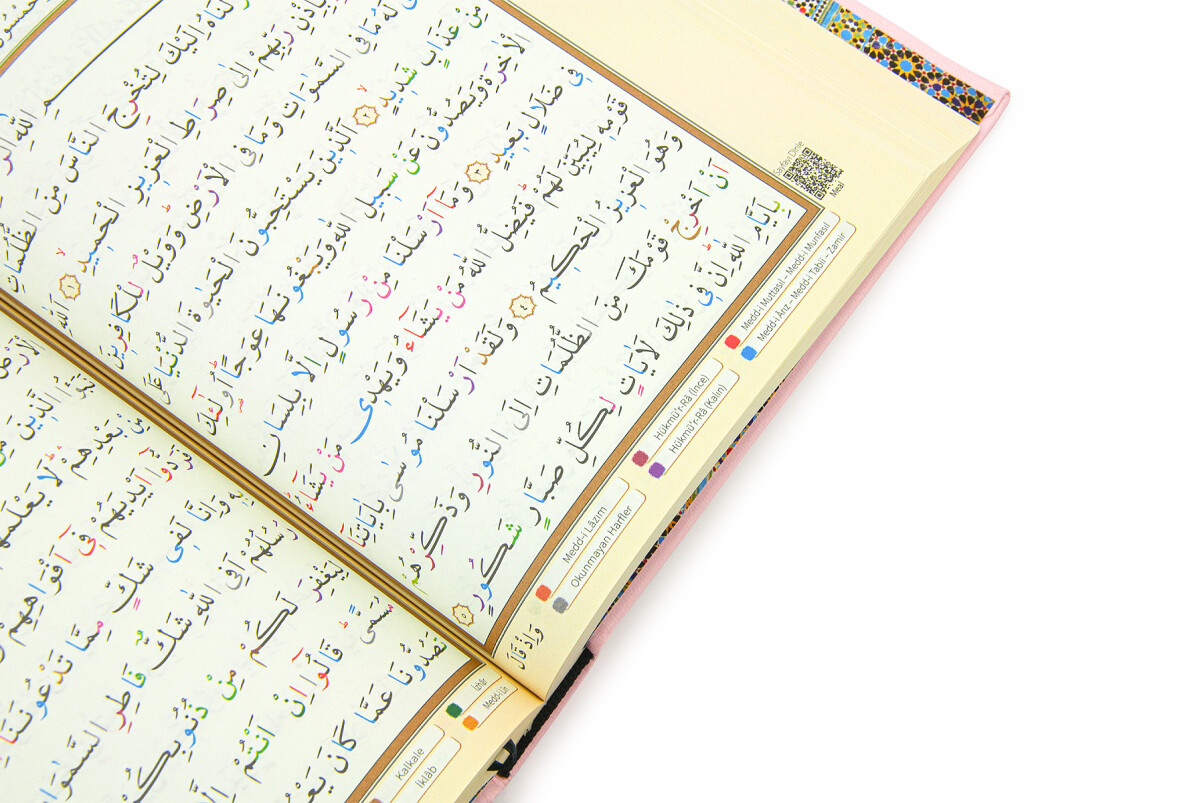 لْنَاهُ اِلَيْكَ لِتُخْرِجَ النَّاسَ مِنَ الظُّلُمَاتِ
بِاِذْنِ رَبِّهِمْ اِلٰى صِرَاطِ الْعَزِيزِ الْحَمِيدِۙ ﴿١﴾ اَللّٰهِ
لَهُ مَا فِى السَّمٰوَاتِ وَمَا فِى الْاَرْضِۜ وَوَيْلٌ لِلْكَافِرِينَ
مِنْ عَذَابٍ شَدِيدٍۙ ﴿٢﴾ اَلَّذِينَ يَسْتَحِبُّونَ الْحَيٰوةَ الدُّنْيَا عَلَى
الْاٰخِرَةِ وَيَصُدُّونَ عَنْ سَبِيلِ اللّٰهِ وَيَبْغُونَهَا عِوَجًاۜ اُو۬لٰٓئِكَ
فِى ضَلَالٍ بَعِيدٍ ﴿٣﴾ وَمَٓا اَرْسَلْنَا مِنْ رَسُولٍ اِلَّا بِلِسَانِ
قَوْمِهِ لِيُبَيِّنَ لَهُمْۜ فَيُضِلُّ اللّٰهُ مَنْ يَشَٓاءُ وَيَهْدِى مَنْ يَشَٓاءُۜ
وَهُوَ الْعَزِيزُ الْحَكِيمُ ﴿٤﴾ وَلَقَدْ اَرْسَلْنَا مُوسٰى بِاٰيَاتِنَٓا
اَنْ اَخْرِجْ قَوْمَكَ مِنَ الظُّلُمَاتِ اِلَى النُّورِ وَذَكِّرْهُمْ
بِاَيَّامِ اللّٰهِۜ اِنَّ فِى ذٰلِكَ لَاٰيَاتٍ لِكُلِّ صَبَّارٍ شَكُورٍ ﴿٥﴾
وَاِذْ قَالَ
Safayı Dinle
Meal
Medd-i Muttasıl – Medd-i Munfasıl
Medd-i Ârız – Medd-i Tabii – Zamir
Hükmü'r-Râ (İnce)
Hükmü'r-Râ (Kalın)
Medd-i Lâzım
Okunmayan Harfler
الَّذِينَ مِنْ
مِنْ بَعْدِهِمْۜ لَا يَعْلَمُ
فَرَدُّٓوا اَيْدِيَهُمْ فِٓى اَفْوَاهِهِمْ
بِهِ وَاِنَّا لَفِى شَكٍّ مِمَّا تَدْعُونَنَٓا
رُسُلُهُمْ اَفِى اللّٰهِ شَكٌّ فَاطِرِ السَّمٰوَا
لِيَغْفِرَ لَكُمْ مِنْ ذُنُوبِكُمْ
مُسَمًّىۜ قَالُٓوا اِنْ اَنْتُمْ اِلَّا
تَصُدُّونَا عَمَّا كَانَ يَعْ
İzhâr
Medd-i Lîn
Kalkale
İklâb